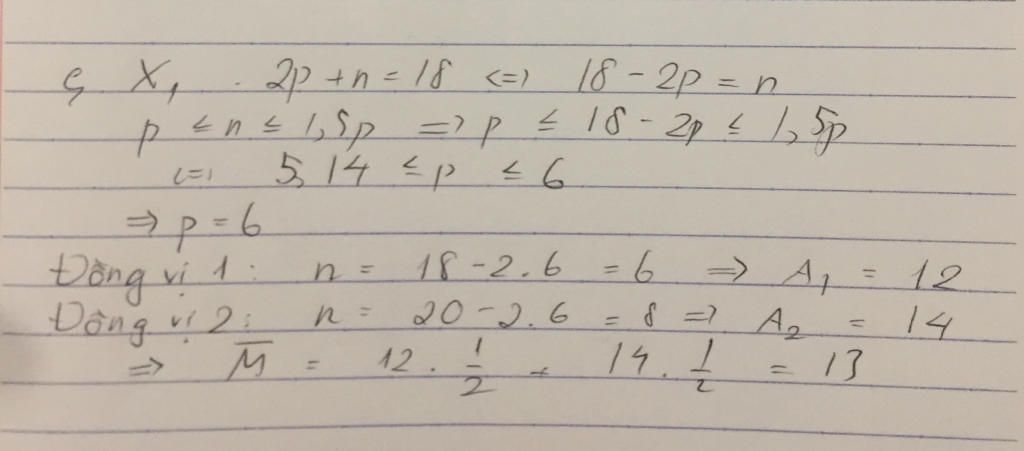 ς X₁ . 2p + n = 18 <=> 18 - 2p = n
p ≤ n ≤ 1,5p => p ≤ 18 - 2p ≤ 1,5p
<=> 5,14 ≤ p ≤ 6
=> p = 6
Đồng vị 1: n = 18 - 2.6 = 6 => A₁ = 12
Đồng vị 2: n = 20 - 2.6 = 8 => A₂ = 14
=> M̅ = 12 . 1/2 + 14 . 1/2 = 13